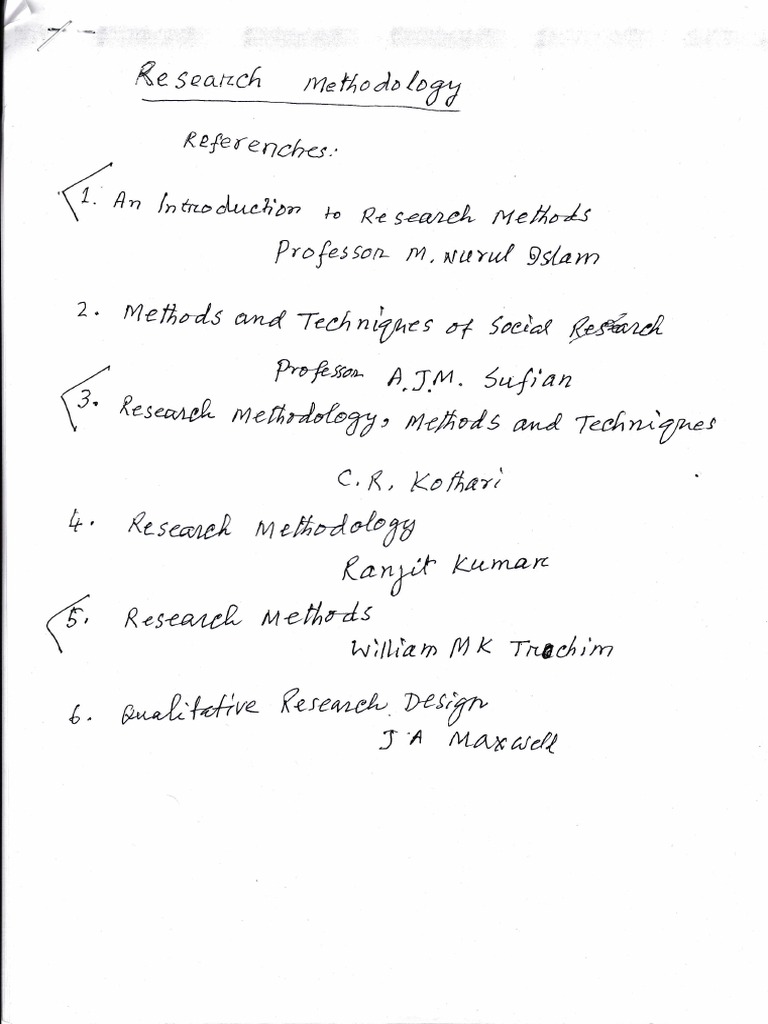 Research Methodology
Referenches:
1. An Introduction to Research Methods
Professor M. Nurul Islam
2. Methods and Techniques of Social Research
Professor A.J.M. Sufian
3. Research Methodology, Methods and Techniques
C.R. Kothari
4. Research Methodology
Ranjit Kumar
5. Research Methods
William MK Trochim
6. Qualitative Research Design
J A Maxwell